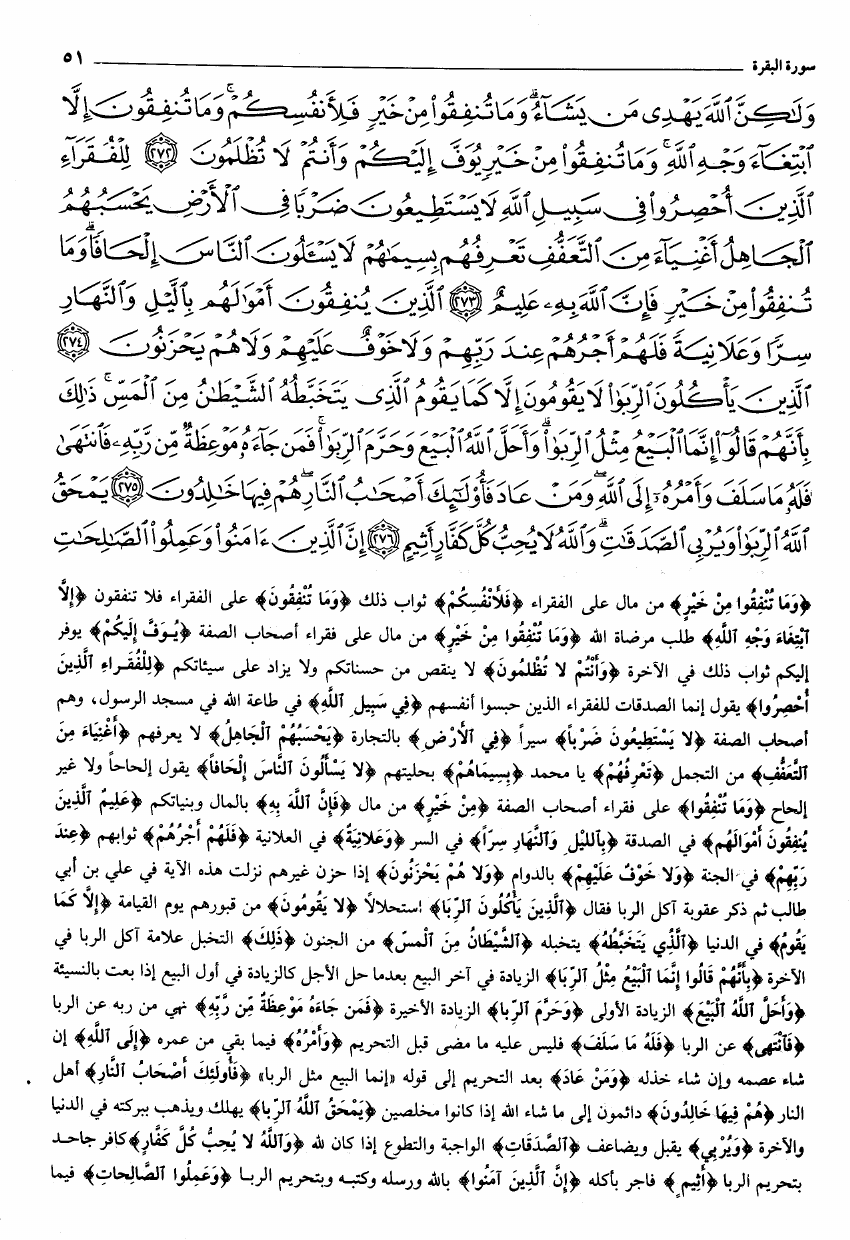 سورة البقرة ٥١
وَلَٰكِنَّ ٱللَّهَ يَهْدِى مَن يَشَآءُ ۗ وَمَا تُنفِقُوا۟ مِنْ خَيْرٍ فَلِأَنفُسِكُمْ ۚ وَمَا تُنفِقُونَ إِلَّا
ٱبْتِغَآءَ وَجْهِ ٱللَّهِ ۚ وَمَا تُنفِقُوا۟ مِنْ خَيْرٍ يُوَفَّ إِلَيْكُمْ وَأَنتُمْ لَا تُظْلَمُونَ ﴿٢٧٢﴾ لِلْفُقَرَآءِ
ٱلَّذِينَ أُحْصِرُوا۟ فِى سَبِيلِ ٱللَّهِ لَا يَسْتَطِيعُونَ ضَرْبًا فِى ٱلْأَرْضِ يَحْسَبُهُمُ
ٱلْجَاهِلُ أَغْنِيَآءَ مِنَ ٱلتَّعَفُّفِ تَعْرِفُهُم بِسِيمَٰهُمْ لَا يَسْـَٔلُونَ ٱلنَّاسَ إِلْحَافًا ۗ وَمَا
تُنفِقُوا۟ مِنْ خَيْرٍ فَإِنَّ ٱللَّهَ بِهِۦ عَلِيمٌ ﴿٢٧٣﴾ ٱلَّذِينَ يُنفِقُونَ أَمْوَٰلَهُم بِٱلَّيْلِ وَٱلنَّهَارِ
سِرًّا وَعَلَانِيَةً فَلَهُمْ أَجْرُهُمْ عِندَ رَبِّهِمْ وَلَا خَوْفٌ عَلَيْهِمْ وَلَا هُمْ يَحْزَنُونَ ﴿٢٧٤﴾
ٱلَّذِينَ يَأْكُلُونَ ٱلرِّبَوٰا۟ لَا يَقُومُونَ إِلَّا كَمَا يَقُومُ ٱلَّذِى يَتَخَبَّطُهُ ٱلشَّيْطَٰنُ مِنَ ٱلْمَسِّ ۚ ذَٰلِكَ
بِأَنَّهُمْ قَالُوٓا۟ إِنَّمَا ٱلْبَيْعُ مِثْلُ ٱلرِّبَوٰا۟ ۗ وَأَحَلَّ ٱللَّهُ ٱلْبَيْعَ وَحَرَّمَ ٱلرِّبَوٰا۟ ۚ فَمَن جَآءَهُۥ مَوْعِظَةٌ مِّن رَّبِّهِۦ فَٱنتَهَىٰ
فَلَهُۥ مَا سَلَفَ وَأَمْرُهُۥٓ إِلَى ٱللَّهِ ۖ وَمَنْ عَادَ فَأُو۟لَٰٓئِكَ أَصْحَٰبُ ٱلنَّارِ ۖ هُمْ فِيهَا خَٰلِدُونَ ﴿٢٧٥﴾ يَمْحَقُ
ٱللَّهُ ٱلرِّبَوٰا۟ وَيُرْبِى ٱلصَّدَقَٰتِ ۗ وَٱللَّهُ لَا يُحِبُّ كُلَّ كَفَّارٍ أَثِيمٍ ﴿٢٧٦﴾ إِنَّ ٱلَّذِينَ ءَامَنُوا۟ وَعَمِلُوا۟ ٱلصَّٰلِحَٰتِ
﴿وَمَا تُنْفِقُوا مِنْ خَيْرٍ﴾ من مال على الفقراء ﴿فَلأَنْفُسِكُمْ﴾ ثواب ذلك ﴿وَمَا تُنْفِقُونَ﴾ على الفقراء فلا تنفقون ﴿إِلَّا
ٱبْتِغَاءَ وَجْهِ ٱللَّهِ﴾ طلب مرضاة الله ﴿وَمَا تُنْفِقُوا مِنْ خَيْرٍ﴾ من مال على فقراء أصحاب الصفة ﴿يُوَفَّ إِلَيكُمْ﴾ يوفر
إليكم ثواب ذلك في الآخرة ﴿وَأَنْتُمْ لا تُظْلَمُونَ﴾ لا ينقص من حسناتكم ولا يزاد على سيئاتكم ﴿لِلْفُقَراءِ ٱلَّذِينَ
أُحْصِرُوا﴾ يقول إنما الصدقات للفقراء الذين حبسوا أنفسهم ﴿فِي سَبِيلِ ٱللَّهِ﴾ في طاعة الله في مسجد الرسول، وهم
أصحاب الصفة ﴿لا يَسْتَطِيعُونَ ضَرْباً﴾ سيراً ﴿فِي ٱلأَرْضِ﴾ بالتجارة ﴿يَحْسَبُهُمْ ٱلْجَاهِلُ﴾ لا يعرفهم ﴿أَغْنِيَاءَ مِنَ
ٱلتَّعَفُّفِ﴾ من التجمل ﴿تَعْرِفُهُمْ﴾ يا محمد ﴿بِسِيمَاهُمْ﴾ بحليتهم ﴿لا يَسْأَلُونَ ٱلنَّاسَ إِلْحَافاً﴾ يقول إلحاحاً ولا غير
إلحاح ﴿وَمَا تُنْفِقُوا﴾ على فقراء أصحاب الصفة ﴿مِنْ خَيْرٍ﴾ من مال ﴿فَإِنَّ ٱللَّهَ بِهِ﴾ بالمال وبنياتكم ﴿عَلِيمٌ ٱلَّذِينَ
يُنفِقُونَ أَمْوَالَهُم﴾ في الصدقة ﴿بِٱللَّيْلِ وَٱلنَّهَارِ سِرّاً﴾ في السر ﴿وَعَلانِيَةً﴾ في العلانية ﴿فَلَهُمْ أَجْرُهُمْ﴾ ثوابهم ﴿عِندَ
رَبِّهِمْ﴾ في الجنة ﴿وَلا خَوْفٌ عَلَيْهِمْ﴾ بالدوام ﴿وَلا هُمْ يَحْزَنُونَ﴾ إذا حزن غيرهم نزلت هذه الآية في علي بن أبي
طالب ثم ذكر عقوبة آكل الربا فقال ﴿ٱلَّذِينَ يَأْكُلُونَ ٱلرِّبَا﴾ استحلالاً ﴿لا يَقُومُونَ﴾ من قبورهم يوم القيامة ﴿إِلَّا كَمَا
يَقُومُ﴾ في الدنيا ﴿ٱلَّذِي يَتَخَبَّطُهُ﴾ يتخبله ﴿ٱلشَّيْطَانُ مِنَ ٱلْمسّ﴾ من الجنون ﴿ذَلِكَ﴾ التخبل علامة آكل الربا في
الآخرة ﴿بِأَنَّهُمْ قَالُوا إِنَّمَا ٱلْبَيْعُ مِثْلُ ٱلرِّبَا﴾ الزيادة في آخر البيع بعدما حل الأجل كالزيادة في أول البيع إذا بعت بالنسيئة
﴿وَأَحَلَّ ٱللَّهُ ٱلْبَيْعَ﴾ الزيادة الأولى ﴿وَحَرَّمَ ٱلرِّبا﴾ الزيادة الأخيرة ﴿فَمَن جَاءَهُ مَوْعِظَةٌ مِّن رَّبِّهِ﴾ نهي من ربه عن الربا
﴿فَٱنْتَهى﴾ عن الربا ﴿فَلَهُ مَا سَلَفَ﴾ فليس عليه ما مضى قبل التحريم ﴿وَأَمْرُهُ﴾ فيما بقي من عمره ﴿إِلَى ٱللَّهِ﴾ إن
شاء عصمه وإن شاء خذله ﴿وَمَنْ عَادَ﴾ بعد التحريم إلى قوله «إنما البيع مثل الربا» ﴿فَأُولَئِكَ أَصْحَابُ ٱلنَّارِ﴾ أهل
النار ﴿هُمْ فِيهَا خَالِدُونَ﴾ دائمون إلى ما شاء الله إذا كانوا مخلصين ﴿يَمْحَقُ ٱللَّهُ ٱلرِّبا﴾ يهلك ويذهب ببركته في الدنيا
والآخرة ﴿وَيُرْبِي﴾ يقبل ويضاعف ﴿ٱلصَّدَقَاتِ﴾ الواجبة والتطوع إذا كان لله ﴿وَٱللَّهُ لا يُحِبُّ كُلَّ كَفَّارٍ﴾ كافر جاحد
بتحريم الربا ﴿أَثِيمٍ﴾ فاجر بأكله ﴿إِنَّ ٱلَّذِينَ آمَنُوا﴾ بالله ورسله وكتبه وبتحريم الربا ﴿وَعَمِلُوا ٱلصَّالِحاتِ﴾ فيما